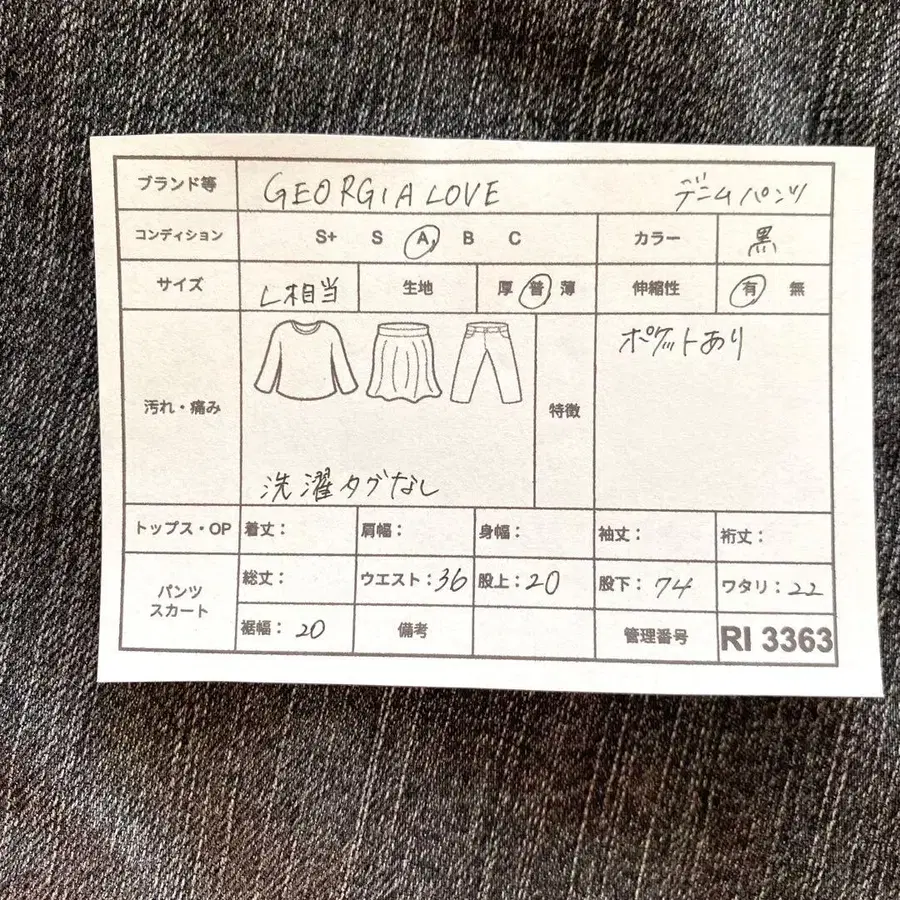 ブランド等 GEORGIA LOVE デニムパンツ
コンディション S+ S A B C カラー 黒
サイズ L相当 生地 厚 普 薄 伸縮性 有 無
汚れ・痛み 洗濯タグなし 特徴 ポケットあり
トップス・OP 着丈： 肩幅： 身幅： 袖丈： 裄丈：
パンツ スカート 総丈： ウエスト：36 股上：20 股下：74 ワタリ：22
裾幅：20 備考 管理番号 RI 3363